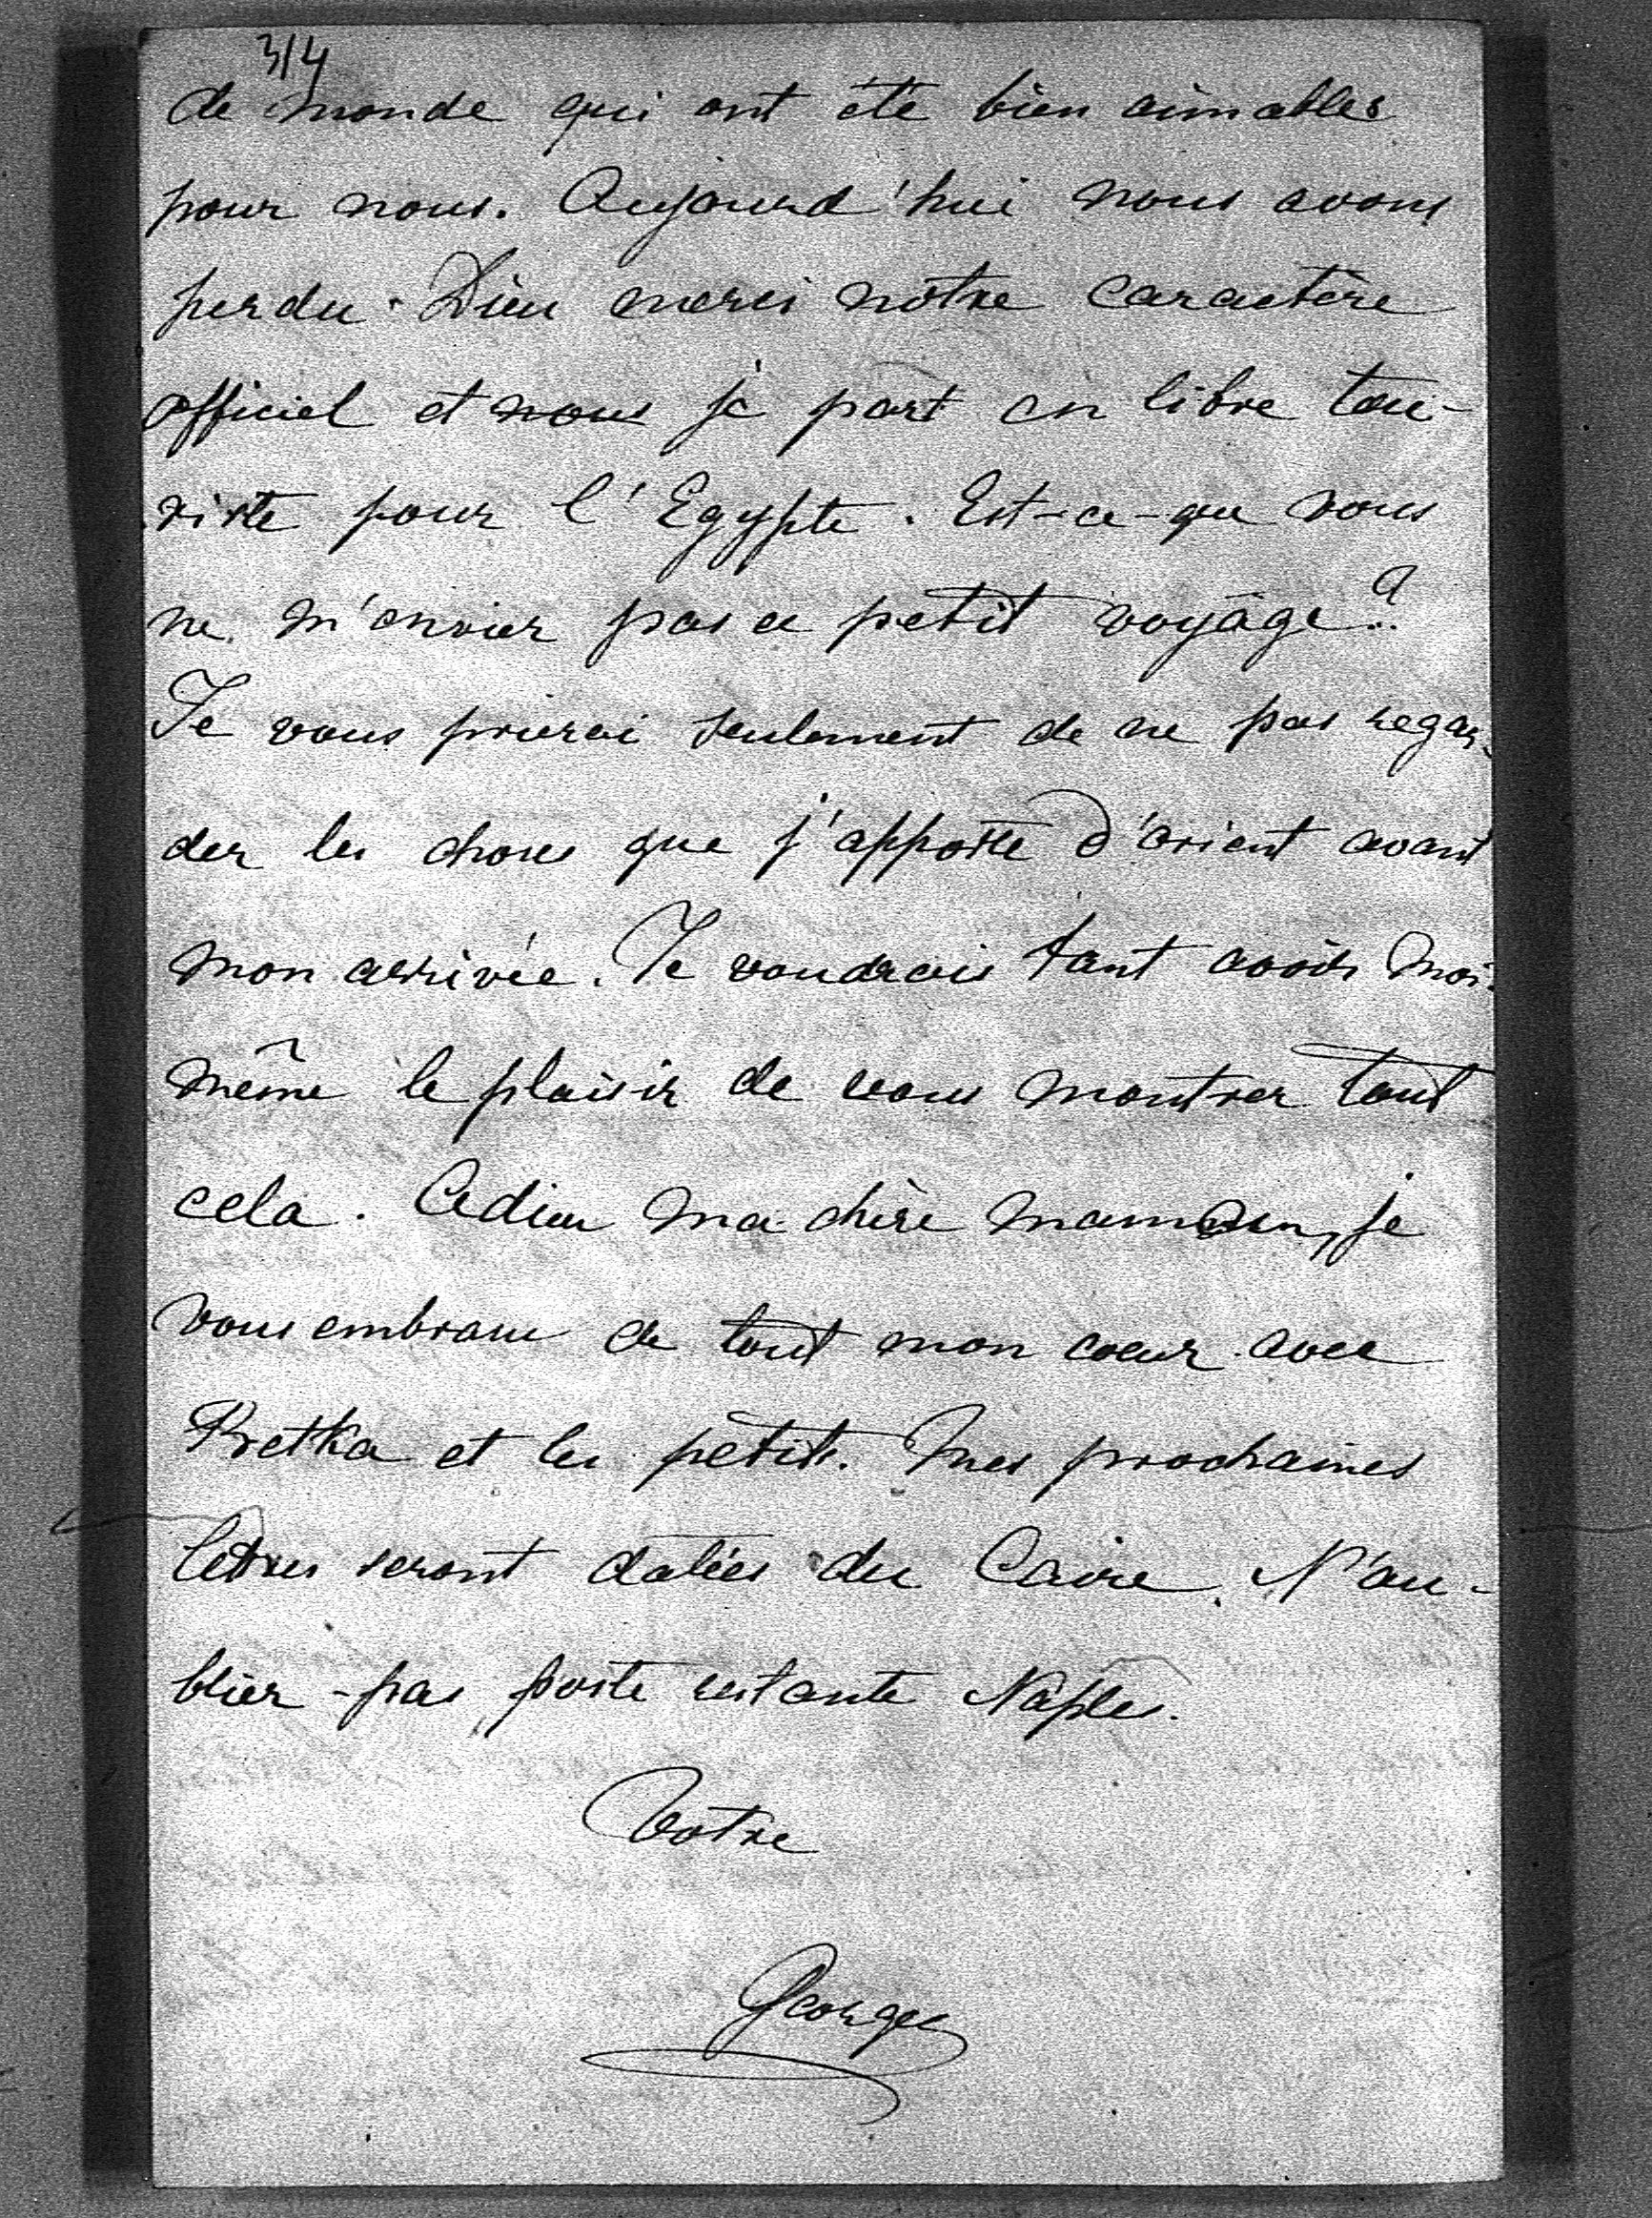 314
de monde qui ont été bien aimables
pour nous. Aujourd'hui nous avons
perdu. Dieu merci nôtre caractère
officiel et nous je part en libre tou-
riste pour l'Egypte. Est-ce-que vous
ne m'envier pas ce petit voyage?
Je vous prierai seulement de ne pas regar-
der les choses que j'apporte d'orient avant
mon arrivée. Je voudrais tant avoir moi-
même le plaisir de vous montrer tout
cela. Adieu ma chère maman, je
vous embrasse de tout mon coeur avec
et les petits. Mes prochaines
lettres seront datées du Caire. N'ou-
blier-pas poste restante Naples.
Votre
Georges